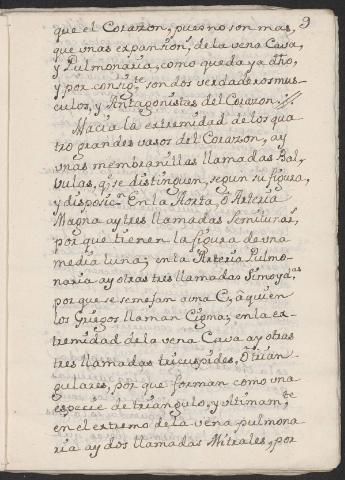 9
que el Corazon, pues no son mas,
que vnas expansion, de la vena Cava,
y Pulmonaria, como queda ya dho,
y por consigte. son dos verdaderos mus-
culos, y Antagonistas del Corazon.
Hacia la extremidad de los qua
tro grandes vasos del Corazon, ay
vnas membranillas llamadas Bal,
vulas, q. se distinguen, segun su figura,
y disposicn. En la Aorta, ò Arteria
Magna ay tres llamadas Semilunas,
por que tienen la figura de vna
media luna; en la Arteria Pulmo-
naria ay otras tres llamadas Simoydas
por que se semejan a vna C, a quien
los Griegos llaman Cigma; en la ex-
tremidad de la vena Cava ay otras
tres llamadas tricuspides, ò trian-
gulares, por que forman como vna
especie de triangulo, y vltimamte.
en el extremo de la vena pulmona
ria ay dos llamadas Mitrales, por